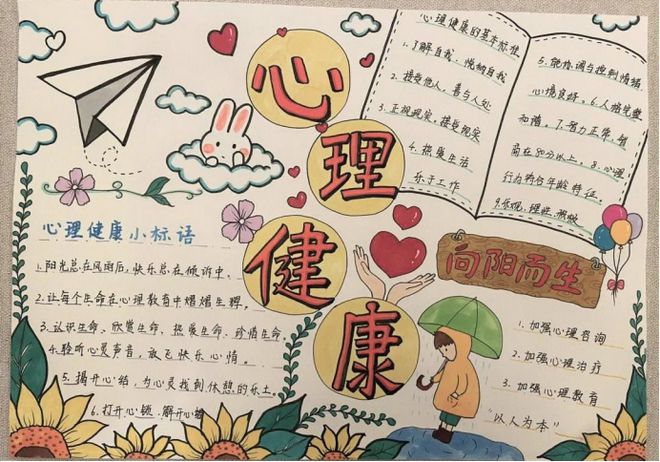 心理健康
心理健康的基本标准
1.了解自我、悦纳自我
2.接受他人，善与人处
3.正视现实，接受现实
4.热爱生活
乐于工作
5.能协调与控制情绪
心境良好。6.人格完整
和谐。7.智力正常，智
商在80分以上。8.心理
行为符合年龄特征。
心理健康小标语
1.阳光总在风雨后，快乐总在倾诉中。
2.让每个生命在心理教育中熠熠生辉。
3.认识生命、欣赏生命、热爱生命、珍惜生命
4.聆听心灵声音，放飞快乐心情。
5.揭开心结，为心灵找到休憩的乐土。
6.打开心锁，解开心
向阳而生
1.加强心理咨询
2.加强心理治疗
3.加强心理教育
"以人为本"